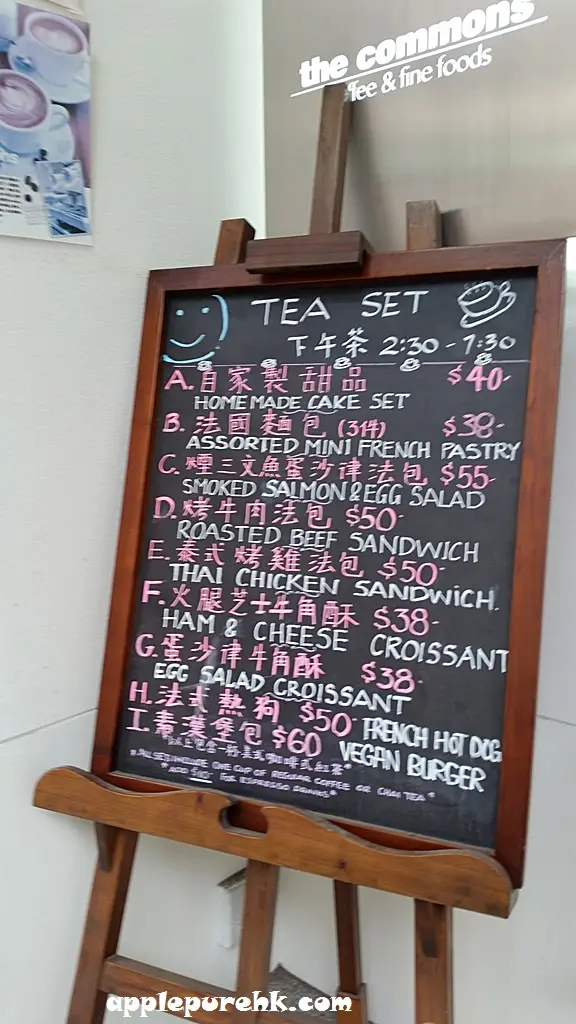 the commons
ffee & fine foods
TEA SET
下午茶 2:30 - 7:30
A. 自家製甜品 $40-
HOMEMADE CAKE SET
B. 法國麵包 (3件) $38-
ASSORTED MINI FRENCH PASTRY
C. 煙三文魚蛋沙律法包 $55-
SMOKED SALMON & EGG SALAD
D. 烤牛肉法包 $50
ROASTED BEEF SANDWICH
E. 泰式烤雞法包 $50-
THAI CHICKEN SANDWICH.
F. 火腿芝士牛角酥 $38-
HAM & CHEESE CROISSANT
G. 蛋沙律牛角酥 $38-
EGG SALAD CROISSANT
H. 法式熱狗 $50- FRENCH HOT DOG
I. 素漢堡包 $60 VEGAN BURGER
"以上包含一杯美式咖啡或紅茶"
"ALL SETS INCLUDE ONE CUP OF REGULAR COFFEE OR CHAI TEA"
"ADD $10- FOR ESPRESSO DRINKS"
applepurehk.com